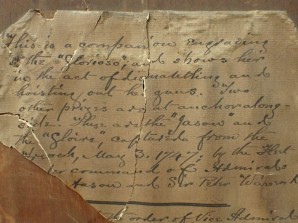 This is a companion engraving
to the "Glorioso" and shows her
in the act of dismantling and
hoisting out her guns. Two
other prizes are at anchor along-
side. These are the "Jason" and
the "Gloire", captured from the
French, May 3, 1747, by the
under command of Admirals
Anson and Sir Peter Warren
the order of Vice Admiral